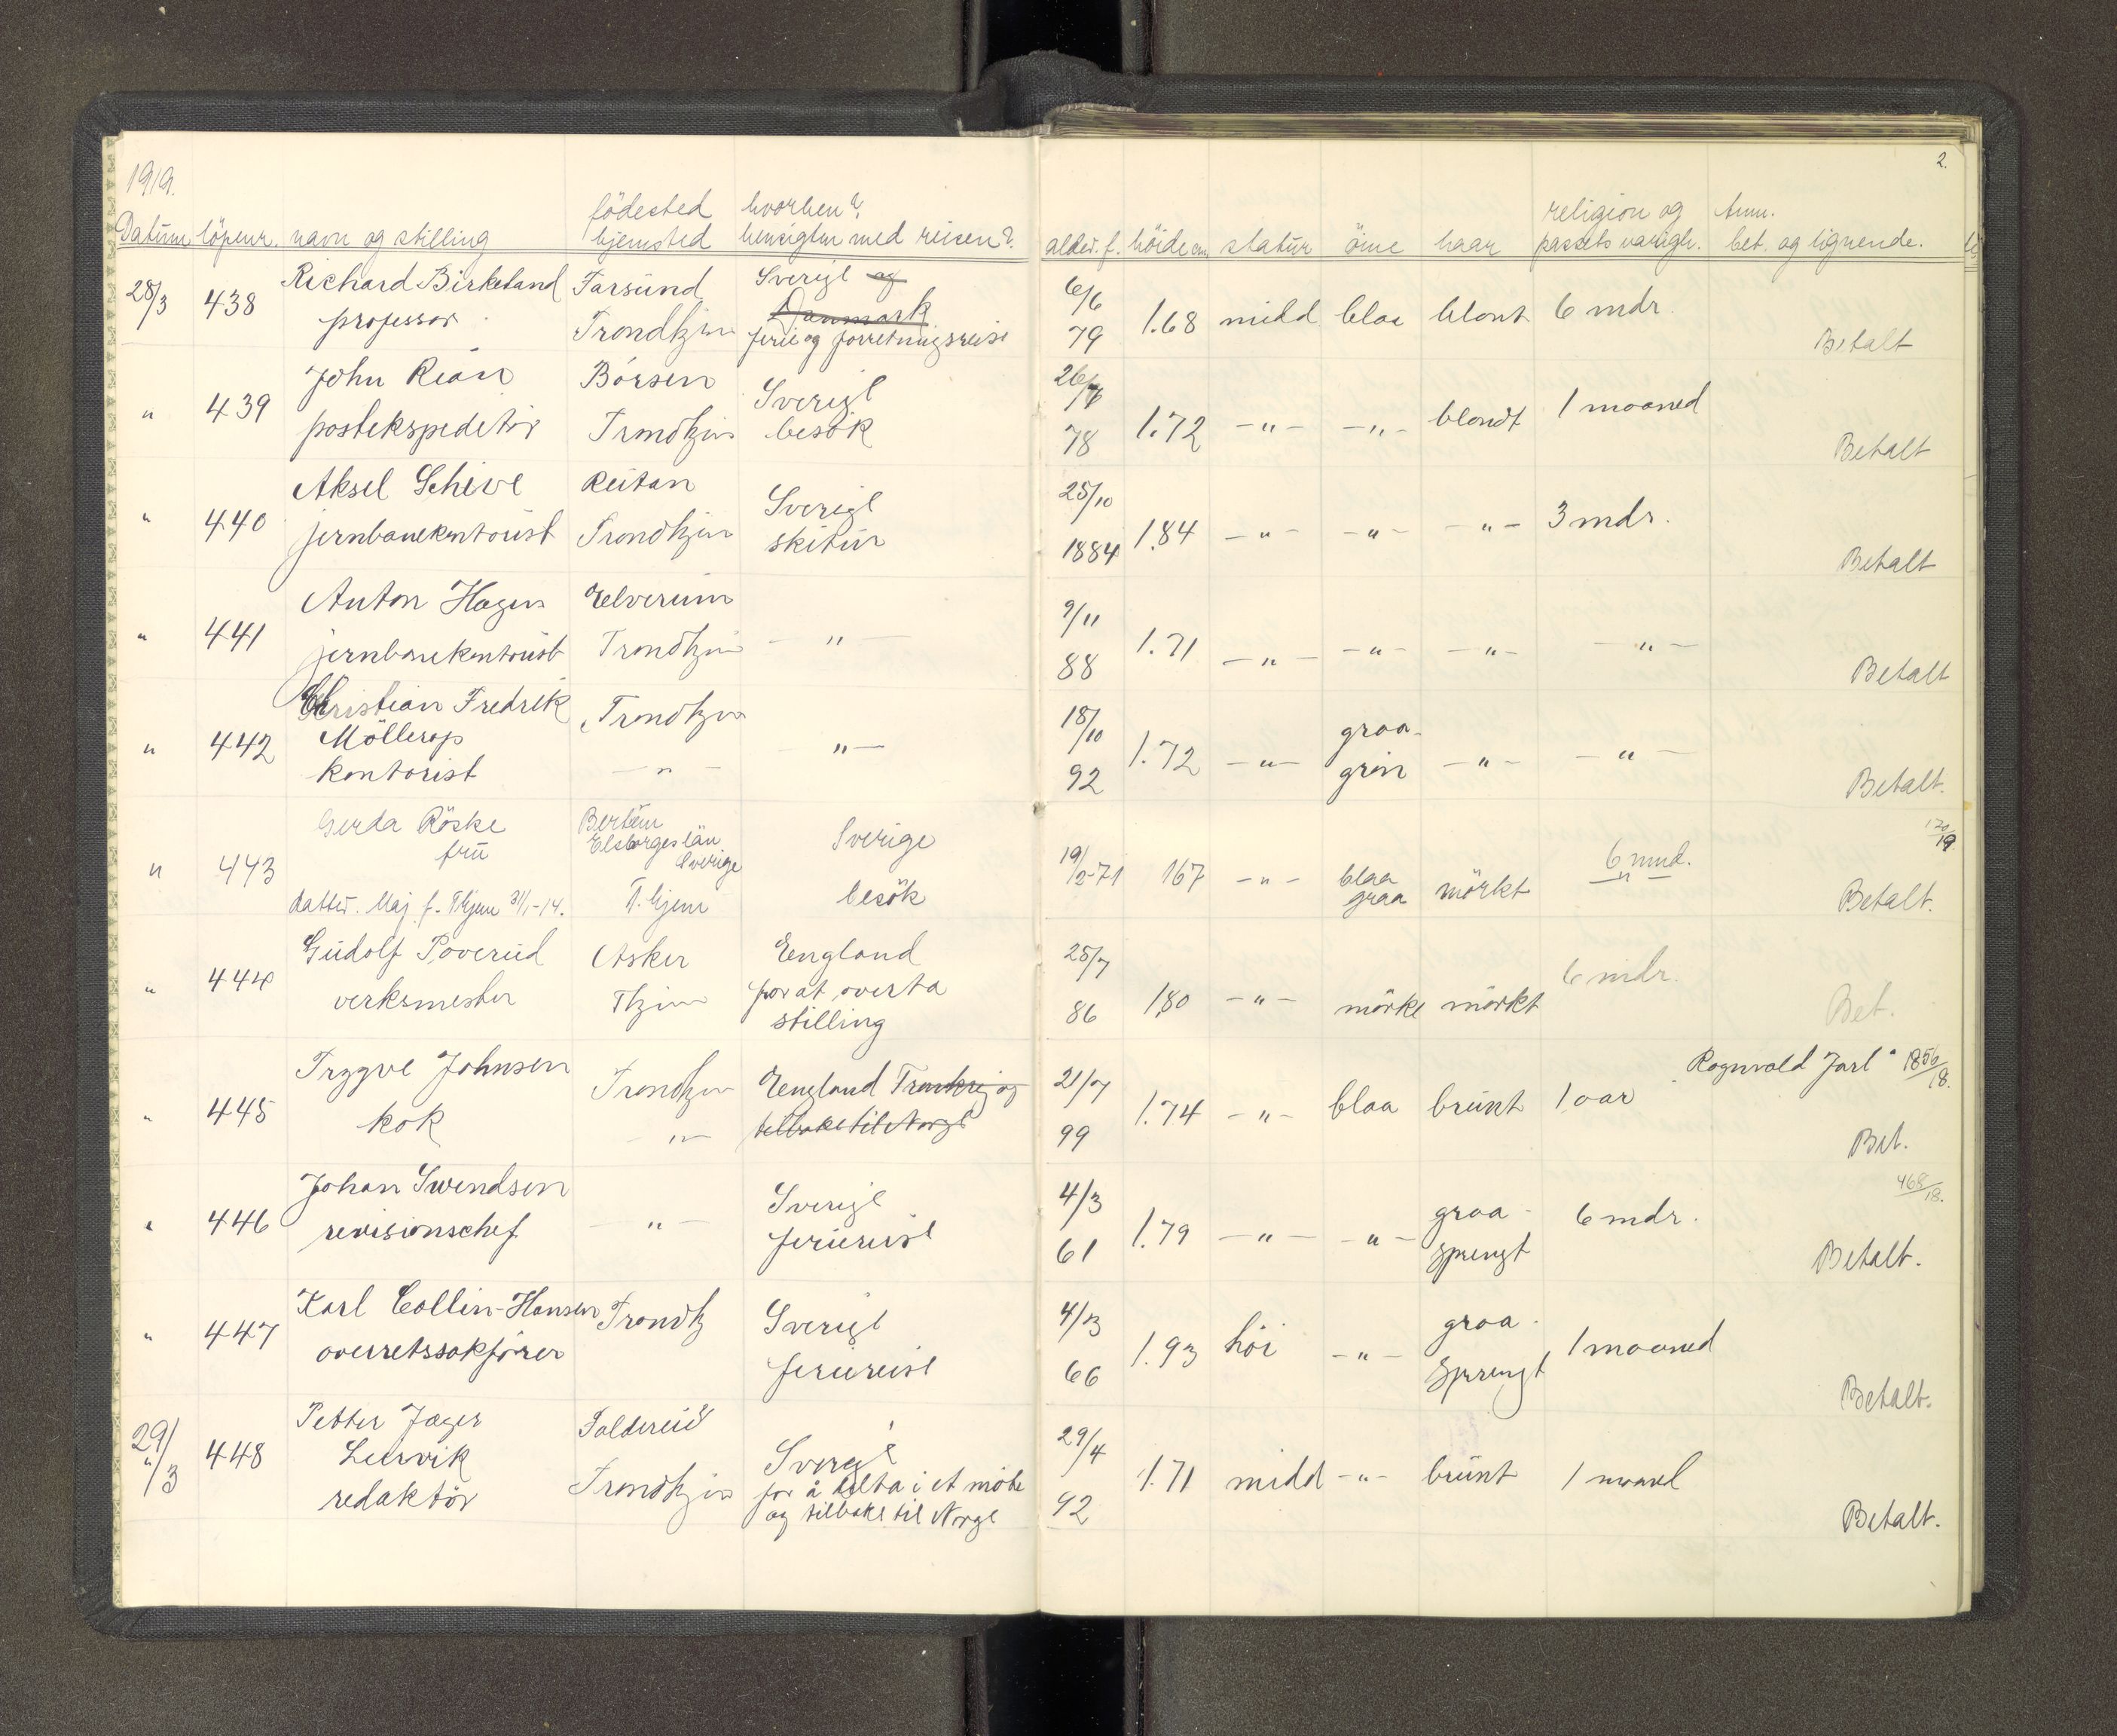 1919.
2.
Datum löpenr. navn og stilling födested hjemsted hvorhen? hensigten med reisen? alder. f. höide cm. statur öine haar religion og passets varigh. Anm. bet. og lignende.
28/3 438 Richard Birkeland Farsund Sverige og 6/6
professor Trondhjem Danmark 79 1.68 midd blaa blont 6 mdr.
ferie og forretningsreise Betalt
" 439 John Rian Börsen Sverige 26/7
postekspeditör Trondhjem besök 78 1.72 -"- -"- blondt 1 maaned
Betalt
" 440 Aksel Schive Reitan Sverige 25/10
jernbanekontorist Trondhjem skitur 1884 1.84 -"- -"- -"- 3 mdr.
Betalt
" 441 Anton Hagen Elverum -"- 9/11
jernbanekontorist Trondhjem 88 1.71 -"- -"- -"- -"-
Betalt
" 442 Christian Fredrik Trondhjem 18/10
Möllerop -"- graa-
kontorist -"- 92 1.72 -"- grön -"- -"-
Betalt.
120/19
" 443 Gerda Röske Sverige
frü Elsborgs län
Sverige 19/2-71 167 -"- blaa graa mörkt 6 mnd.
datter. Maj f. Thjem 31/1-14. T.hjem besök -"-
Betalt.
" 444 Gudolf Poverud Asker England 25/7
verksmester Thjem for at overta 86 1.80 -"- mörke mörkt 6 mdr.
stilling Bet.
" 445 Trygve Johnsen Trondhjem England Frankrig og 21/7 "Rognvald Jarl" 1856/18.
kok -"- tilbake til Norge 99 1.74 -"- blaa brunt 1 aar
Bet.
468/18.
" 446 Johan Swendsen -"- Sverige 4/3 graa-
revisionschef feriereise 61 1.79 -"- -"- sprengt 6 mdr.
Betalt.
" 447 Karl Collin-Hansen Trondhj Sverige 4/3 graa-
overretssakförer feriereise 66 1.93 höi -"- sprengt 1 maaned
Betalt.
29/3 " 448 Petter Jager Foldereid Sverige 29/4
Leirvik for å delta i et möte
redaktör Trondhjem og tilbake til Norge 92 1.71 midd -"- brunt 1 maaned
Betalt.